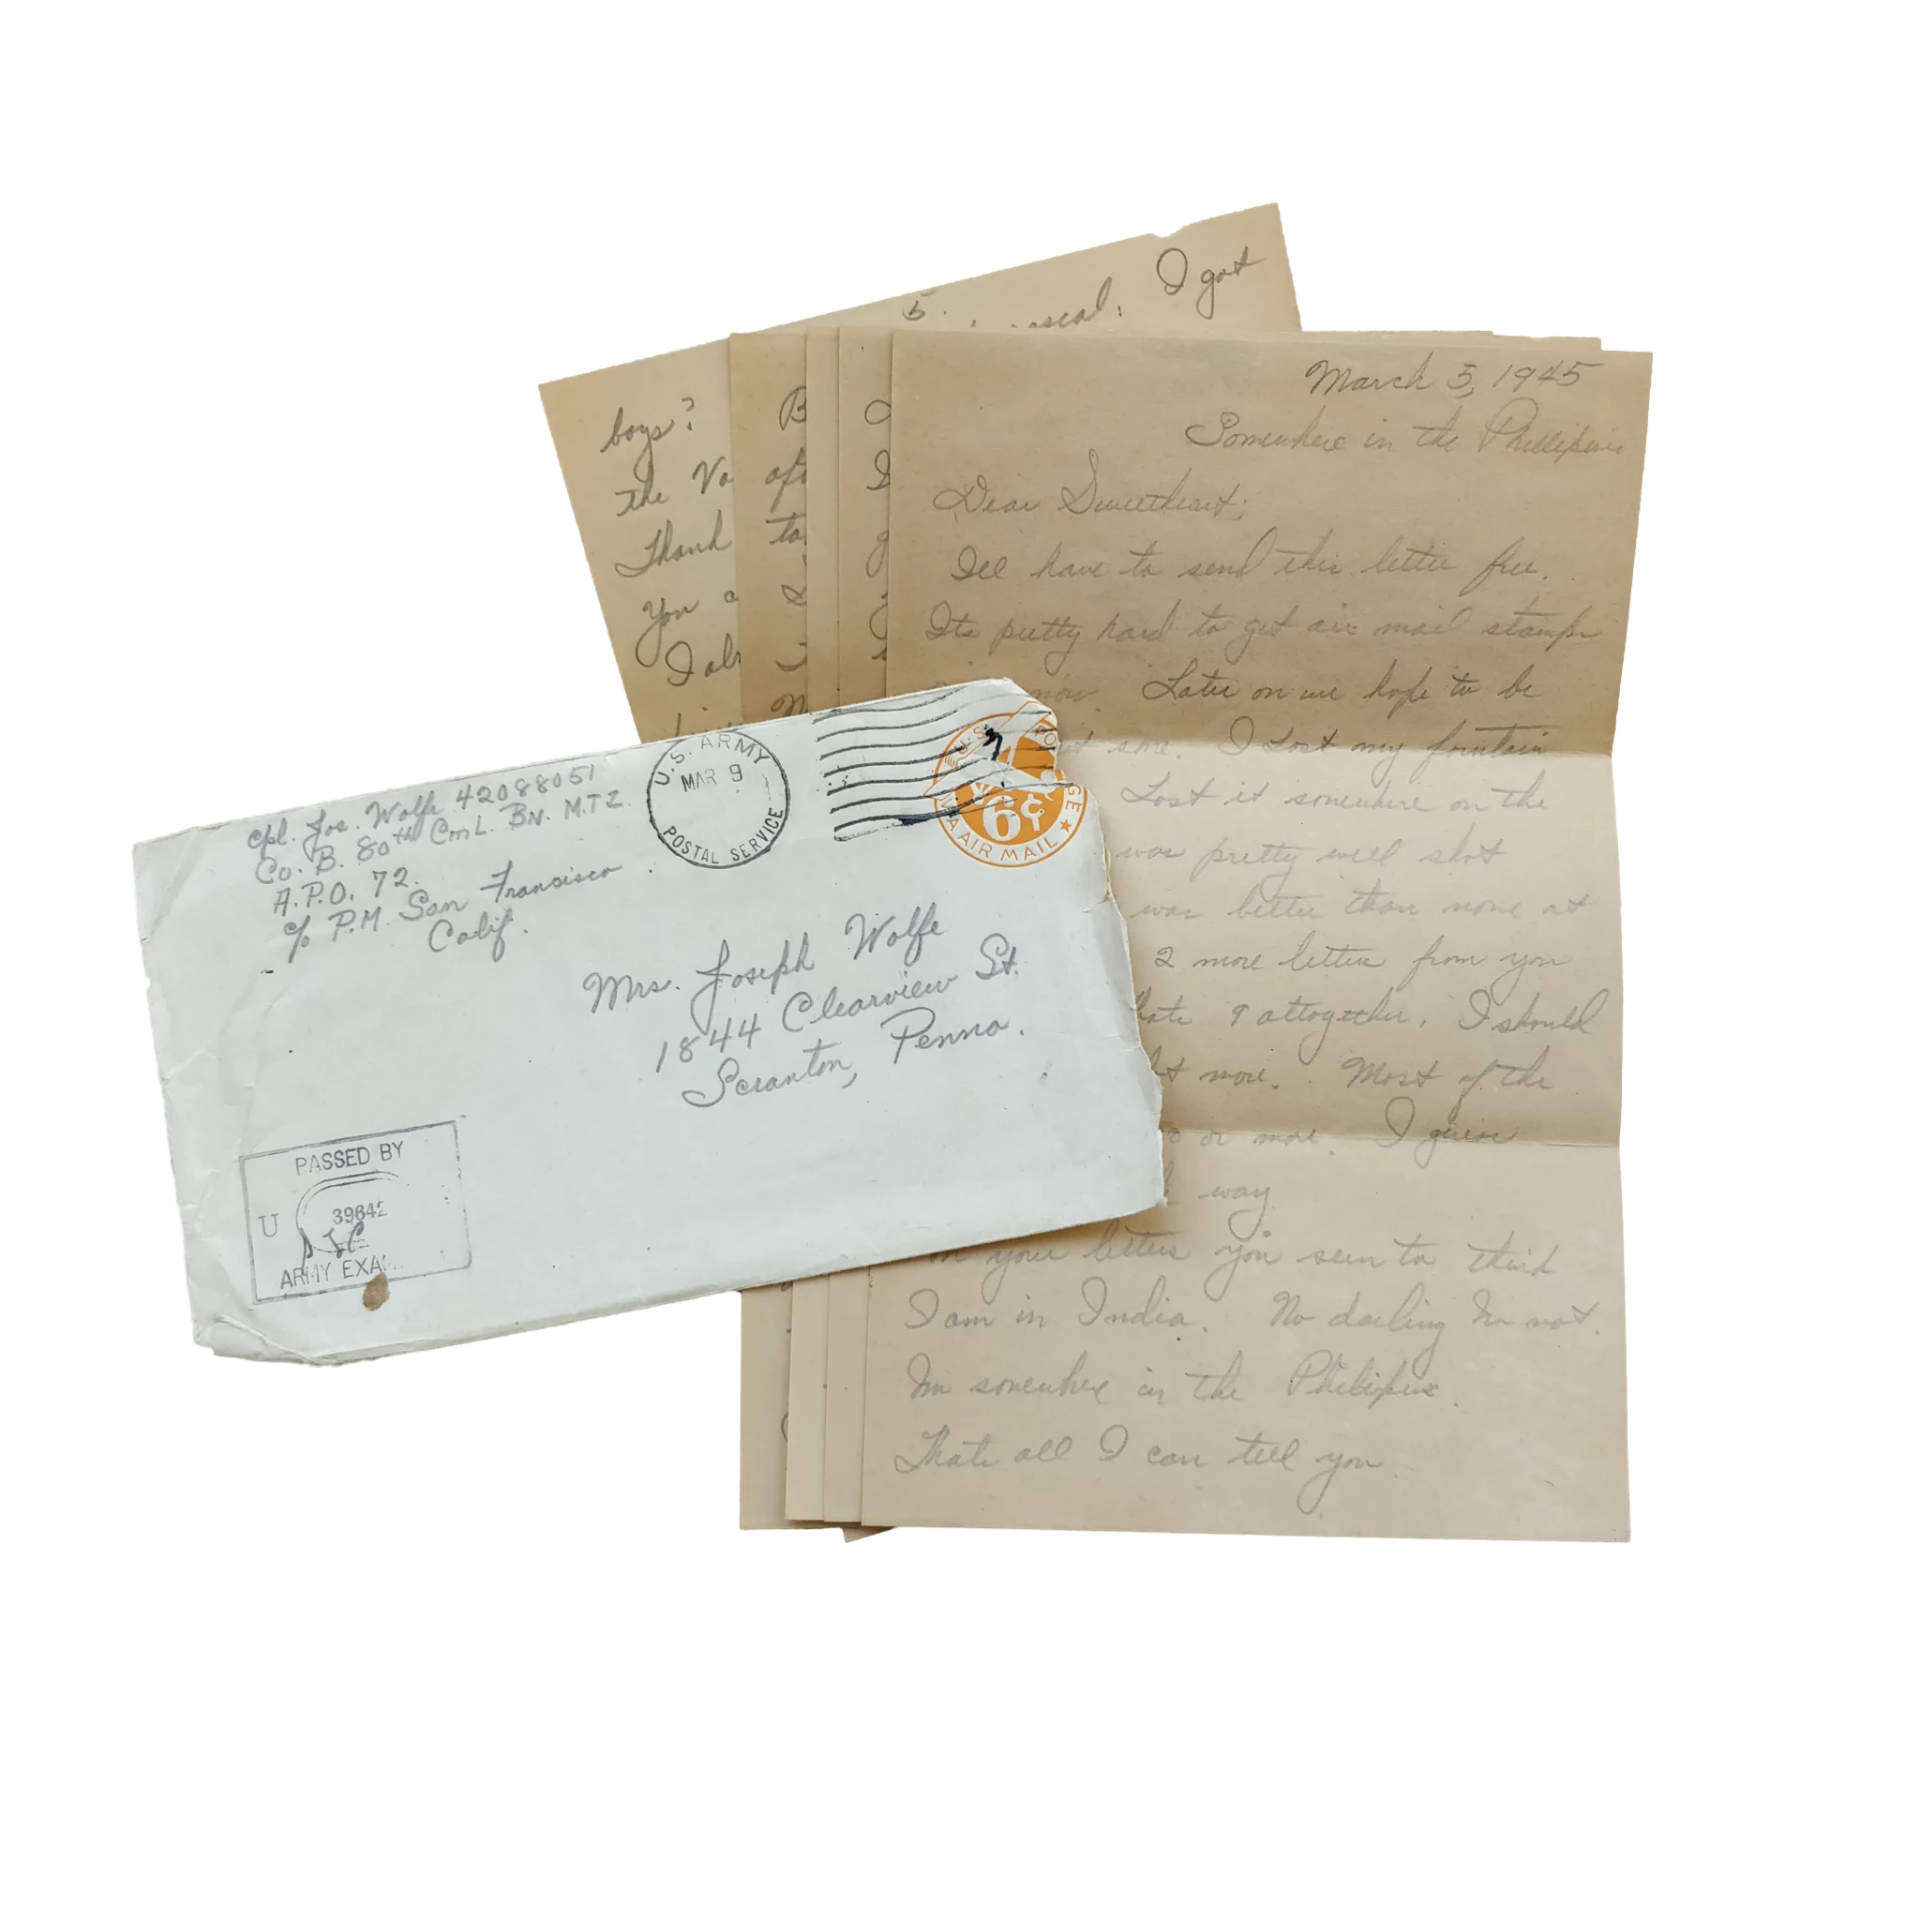 cpl. Jos. Wolfe 42088051
Co. B. 80th CmL. BN. M.TZ.
A.P.O. 72.
c/o P.M. San Francisco
Calif.
U.S. ARMY
MAR 9
POSTAL SERVICE
U.S. PO GE
6¢
VIA AIR MAIL
Mrs. Joseph Wolfe
1844 Clearview St.
Scranton, Penna.
PASSED BY
U 39642
ARMY EXA
5.
I got
boys?
the Va
Thank
You a
B
to
March 5, 1945
Somewhere in the Phillipines
Dear Sweetheart;
Ill have to send this letter free.
Its pretty hard to get air mail stamps
now. Later on we hope to be
some. I Lost my fountain
Lost it somewhere on the
was pretty well shot
was better than none at
2 more letters from you
9 altogether. I should
more. Most of the
or more. I guess
way
In your letters you seem to think
I am in India. No darling Im not.
Im somewhere in the Philipines.
Thats all I can tell you.